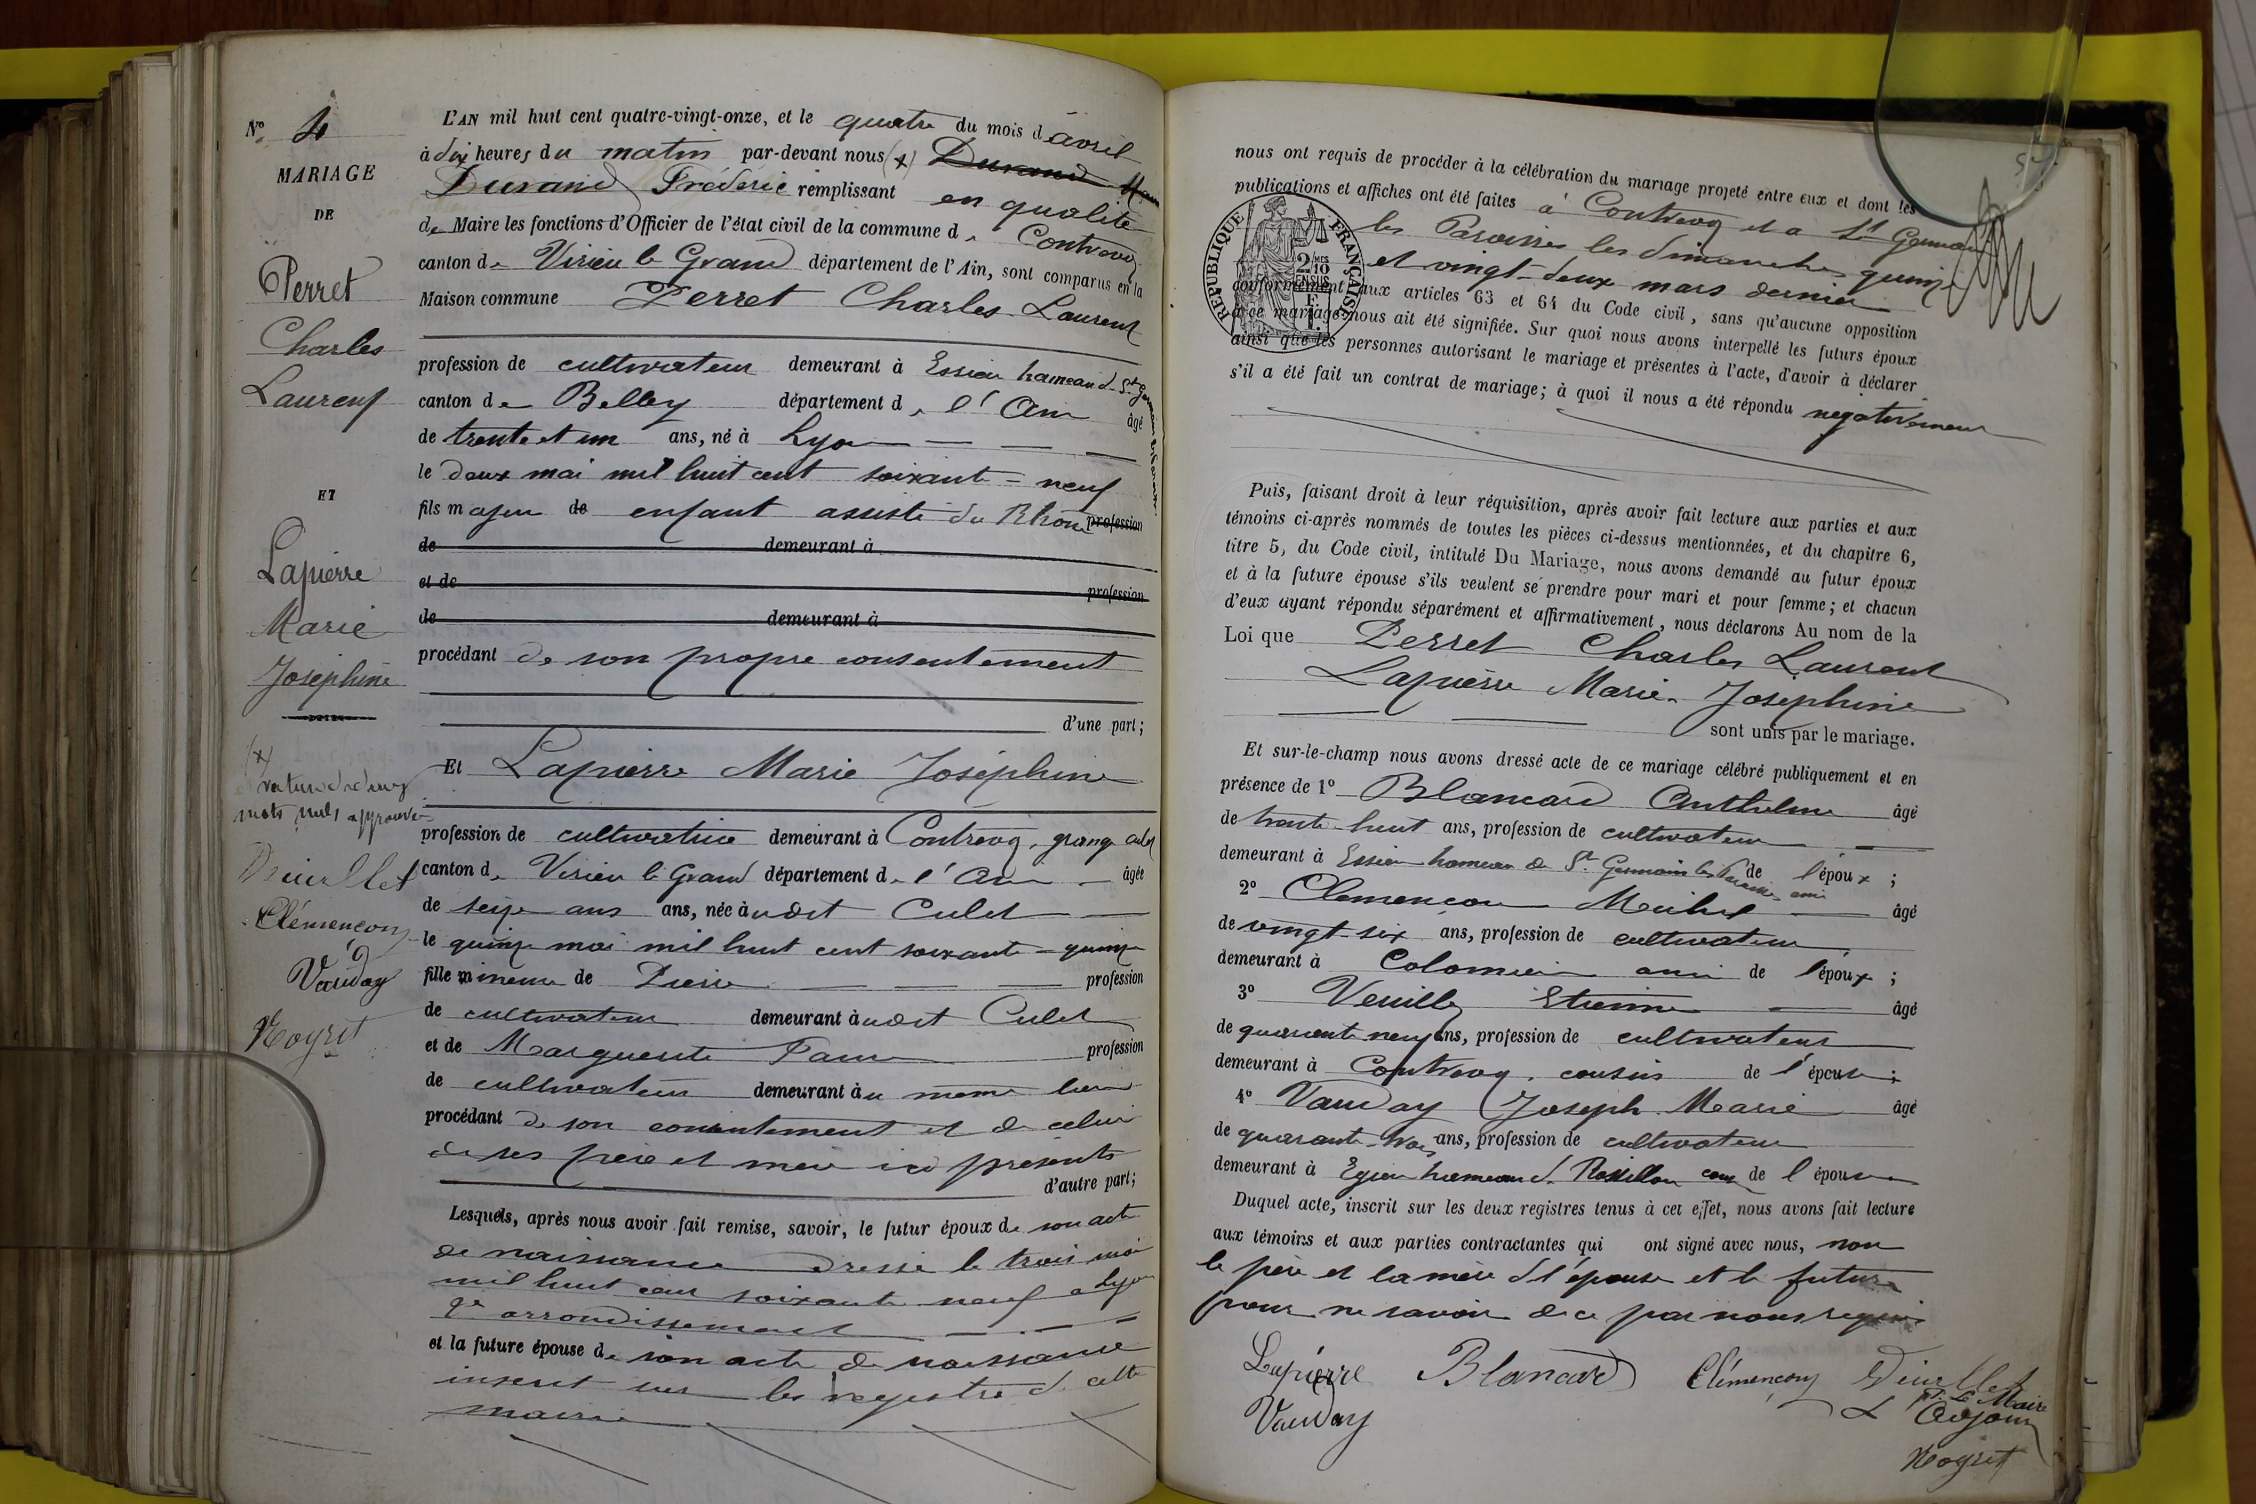 N° 4
MARIAGE
DE
Perret
Charles
Laurent
ET
Lapierre
Marie
Joséphine
(x)
rature de deux
mots nuls approuvé
Clémençon
Vauday
Noyret
L'AN mil huit cent quatre-vingt-onze, et le quatre du mois d'avril
à dix heures du matin par-devant nous (x) Durand
Durand Fréderic remplissant en qualité
de Maire les fonctions d'Officier de l'état civil de la commune de Contrevoz
canton de Virieu le Grand département de l'Ain, sont comparus en la
Maison commune Perret Charles Laurent
profession de cultivateur demeurant à Essieu hameau de St Germain les Paroisses
canton de Belley département de l'Ain âgé
de trente et un ans, né à Lyon
le deux mai mil huit cent soixante-neuf
fils majeur de enfant assisté du Rhône profession
de demeurant à
et de profession
de demeurant à
procédant de son propre consentement
d'une part;
Et Lapierre Marie Joséphine
profession de cultivatrice demeurant à Contrevoz, grange culet
canton de Virieu le Grand département de l'Ain âgée
de seize ans ans, née à udit Culet
le quinze mai mil huit cent soixante-quinze
fille mineure de Pierre profession
de cultivateur demeurant à udit Culet
et de Marguerite profession
de cultivateur demeurant à u même lieu
procédant de son consentement et de celui
de ses père et mère ici présents
d'autre part;
Lesquels, après nous avoir fait remise, savoir, le futur époux de son acte
de naissance dressé le trois mai
mil huit cent soixante neuf a Lyon
2e arrondissement
et la future épouse de son acte de naissance
inscrit sur les registre de cette
mairie
nous ont requis de procéder à la célébration du mariage projeté entre eux et dont les
publications et affiches ont été faites à Contrevoz et a St Germain
les Paroisses les dimanches quinze
et vingt-deux mars dernier
conformément aux articles 63 et 64 du Code civil, sans qu'aucune opposition
à ce mariage nous ait été signifiée. Sur quoi nous avons interpellé les futurs époux
ainsi que les personnes autorisant le mariage et présentes à l'acte, d'avoir à déclarer
s'il a été fait un contrat de mariage; à quoi il nous a été répondu négativement
RÉPUBLIQUE FRANÇAISE
2/10 MES
EN SUS
Puis, faisant droit à leur réquisition, après avoir fait lecture aux parties et aux
témoins ci-après nommés de toutes les pièces ci-dessus mentionnées, et du chapitre 6,
titre 5, du Code civil, intitulé Du Mariage, nous avons demandé au futur époux
et à la future épouse s'ils veulent se prendre pour mari et pour femme; et chacun
d'eux ayant répondu séparément et affirmativement, nous déclarons Au nom de la
Loi que Perret Charles Laurent
Lapierre Marie Joséphine
sont unis par le mariage.
Et sur-le-champ nous avons dressé acte de ce mariage célébré publiquement et en
présence de 1° Blancard Anthelme âgé
de trente-huit ans, profession de cultivateur
demeurant à Essieu hameau de St Germain les Paroisses ami de l'époux;
2° Clémençon Michel âgé
de vingt-six ans, profession de cultivateur
demeurant à Colomieu ami de l'époux;
3° Veuillet Etienne âgé
de quarante neuf ans, profession de cultivateur
demeurant à Contrevoz, cousin de l'épouse;
4° Vauday Joseph Marie âgé
de quarante-trois ans, profession de cultivateur
demeurant à Egieu hameau de Rossillon de l'épouse
Duquel acte, inscrit sur les deux registres tenus à cet effet, nous avons fait lecture
aux témoins et aux parties contractantes qui ont signé avec nous, non
le père et la mère de l'épouse et le futur
pour ne savoir de ce par nous requis
Lapierre Blancard Clémençon
Vauday
Pr Le Maire
L'Adjoint
Noyret